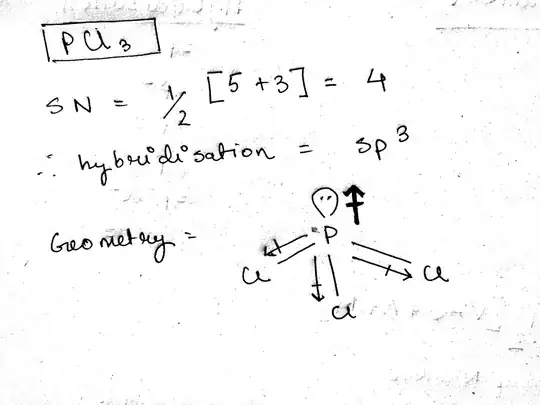 PCl₃
SN = 1/2 [5 + 3] = 4
∴ hybridisation = sp³
Geometry =
P
Cl
Cl
Cl